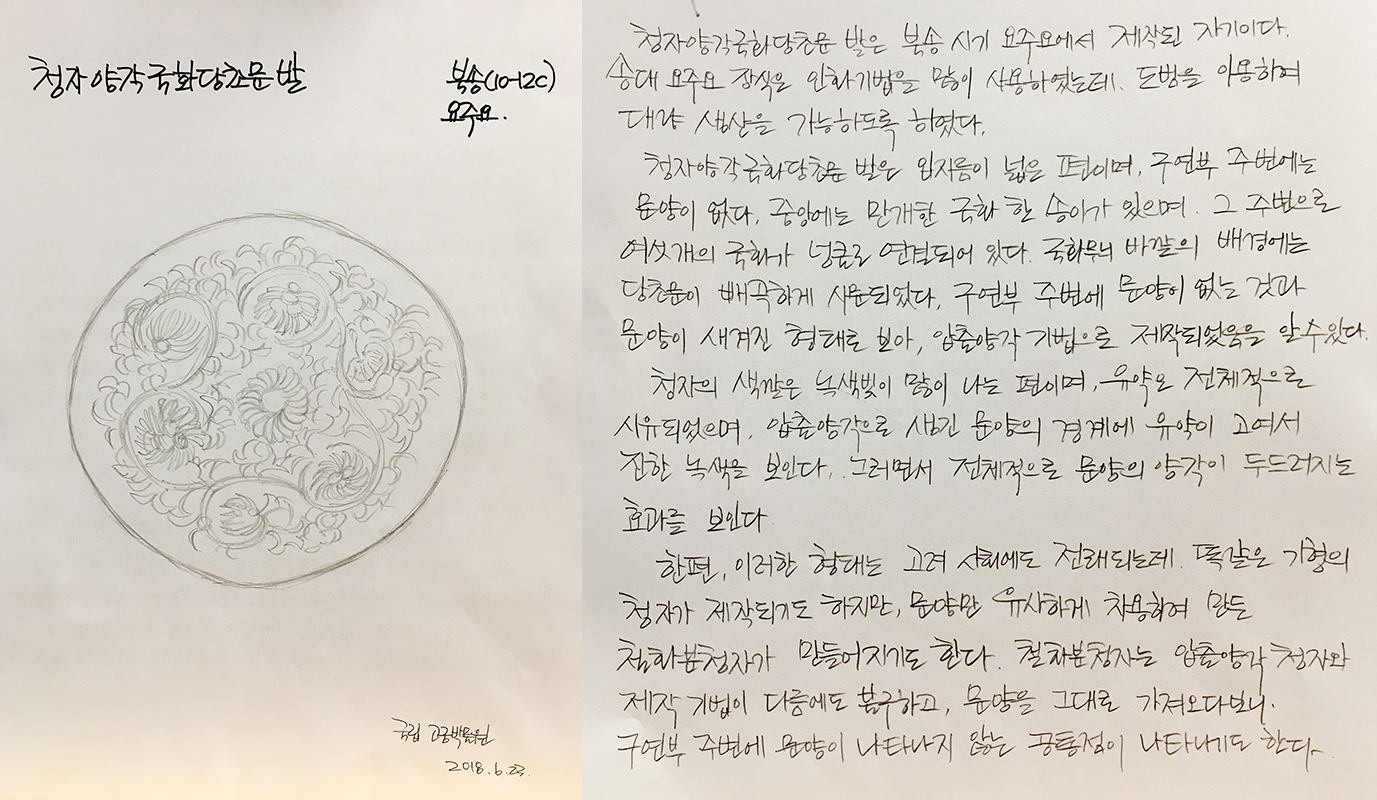 청자양각국화당초문 발
북송(10-12C)
요주요.
국립고궁박물관
2018. 6. 23.
청자양각국화당초문 발은 북송 시기 요주요에서 제작된 자기이다.
송대 요주요 장식은 인화기법을 많이 사용하였는데, 도범을 이용하여
대량 생산을 가능하도록 하였다.
청자양각국화당초문 발은 입지름이 넓은 편이며, 구연부 주변에는
문양이 없다. 중앙에는 만개한 국화 한 송이가 있으며, 그 주변으로
여섯개의 국화가 넝쿨로 연결되어 있다. 국화무늬 바깥의 배경에는
당초문이 빼곡하게 시문되었다. 구연부 주변에 문양이 없는 것과
문양이 새겨진 형태로 보아, 압출양각 기법으로 제작되었음을 알 수 있다.
청자의 색깔은 녹색빛이 많이 나는 편이며, 유약도 전체적으로
시유되었으며, 압출양각으로 생긴 문양의 경계에 유약이 고여서
진한 녹색을 보인다. 그러면서 전체적으로 문양의 양각이 두드러지는
효과를 보인다
한편, 이러한 형태는 고려 사회에도 전래되는데, 똑같은 기형의
청자가 제작되기도 하지만, 문양만 유사하게 차용하여 만든
철화분청자가 만들어지기도 한다. 철화분청자는 압출양각 청자와
제작 기법이 다름에도 불구하고, 문양을 그대로 가져오다보니,
구연부 주변에 문양이 나타나지 않는 공통점이 나타나기도 한다.